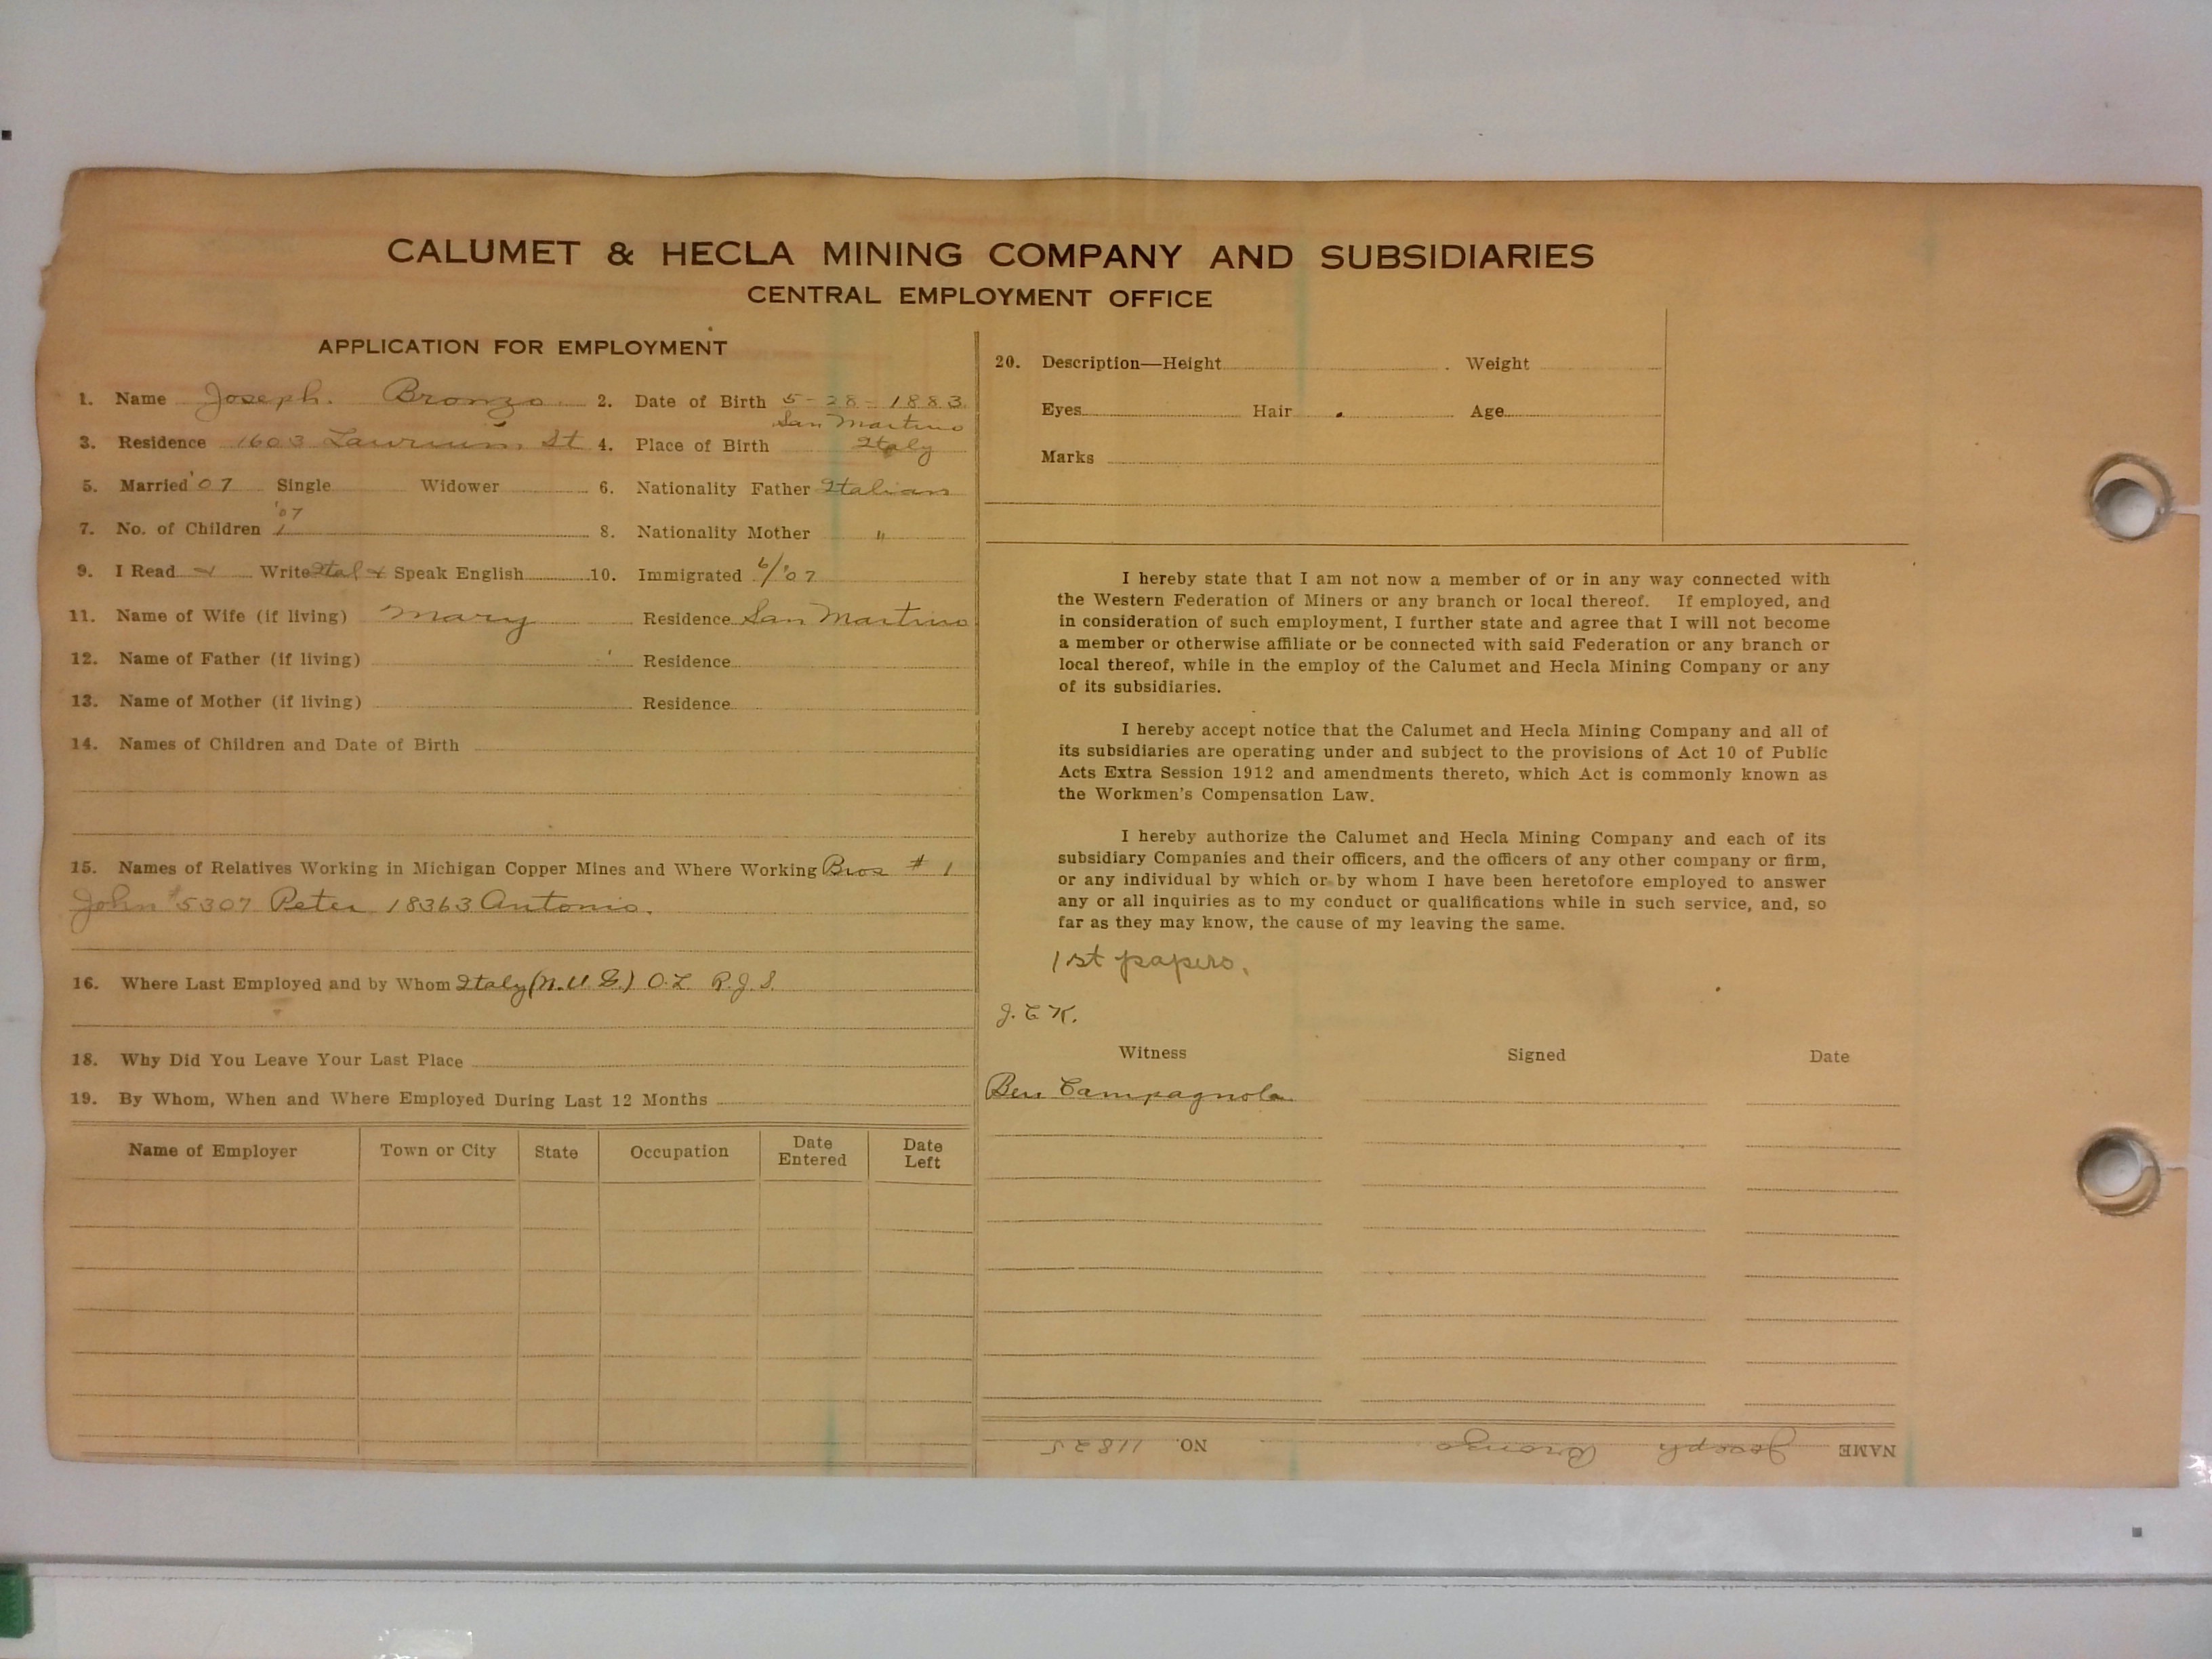 CALUMET & HECLA MINING COMPANY AND SUBSIDIARIES
CENTRAL EMPLOYMENT OFFICE
APPLICATION FOR EMPLOYMENT
1. Name Joseph. Bronzo 2. Date of Birth 5-28-1883
San Martino
3. Residence 1603 Laurium St 4. Place of Birth Italy
5. Married '07 Single Widower 6. Nationality Father Italian
'07
7. No. of Children 1 8. Nationality Mother "
9. I Read & Write Ital & Speak English 10. Immigrated 6/'07
11. Name of Wife (if living) Mary Residence San Martino
12. Name of Father (if living) Residence
13. Name of Mother (if living) Residence
14. Names of Children and Date of Birth
15. Names of Relatives Working in Michigan Copper Mines and Where Working Bros # 1
John #5307 Peter 18363 Antonio.
16. Where Last Employed and by Whom Italy (N.U.G.) O.L R.J.S.
18. Why Did You Leave Your Last Place
19. By Whom, When and Where Employed During Last 12 Months
Name of Employer Town or City State Occupation Date Entered Date Left
20. Description—Height Weight
Eyes Hair Age
Marks
I hereby state that I am not now a member of or in any way connected with
the Western Federation of Miners or any branch or local thereof. If employed, and
in consideration of such employment, I further state and agree that I will not become
a member or otherwise affiliate or be connected with said Federation or any branch or
local thereof, while in the employ of the Calumet and Hecla Mining Company or any
of its subsidiaries.
I hereby accept notice that the Calumet and Hecla Mining Company and all of
its subsidiaries are operating under and subject to the provisions of Act 10 of Public
Acts Extra Session 1912 and amendments thereto, which Act is commonly known as
the Workmen's Compensation Law.
I hereby authorize the Calumet and Hecla Mining Company and each of its
subsidiary Companies and their officers, and the officers of any other company or firm,
or any individual by which or by whom I have been heretofore employed to answer
any or all inquiries as to my conduct or qualifications while in such service, and, so
far as they may know, the cause of my leaving the same.
1st papers.
J.E.K.
Witness Signed Date
Ben Campagnola
NAME Joseph Bronzo NO. 11825